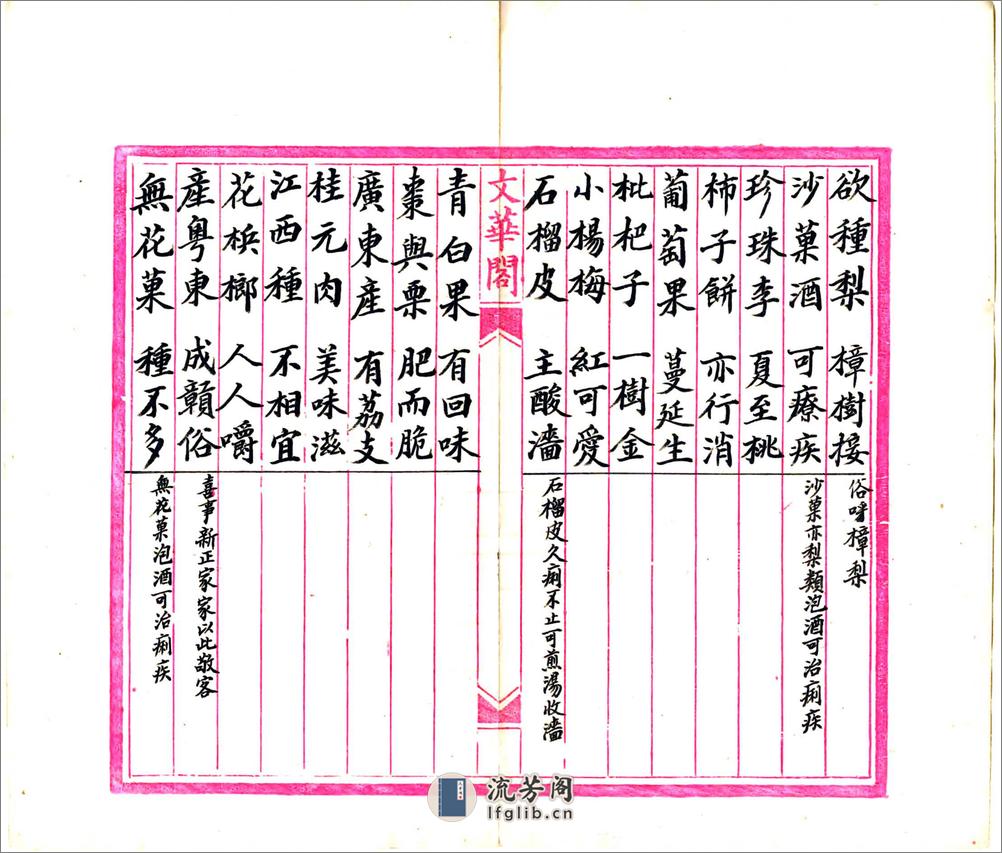 欲種梨　樟樹接　俗呼樟梨
沙菓酒　可療疾　沙菓亦梨類泡酒可治痢疾
珍珠李　夏至桃
柿子餅　亦行消
葡萄果　蔓延生
枇杷子　一樹金
小楊梅　紅可愛
石榴皮　主酸濇　石榴皮久痢不止可煎湯收濇
文華閣
青白果　有回味
棗與栗　肥而脆
廣東產　有荔支
桂元肉　美味滋
江西種　不相宜
花梹榔　人人嚼
產粵東　成贛俗　喜事新正家家以此敬客
無花菓　種不多　無花菓泡酒可治痢疾
流芳阁
lfglib.cn